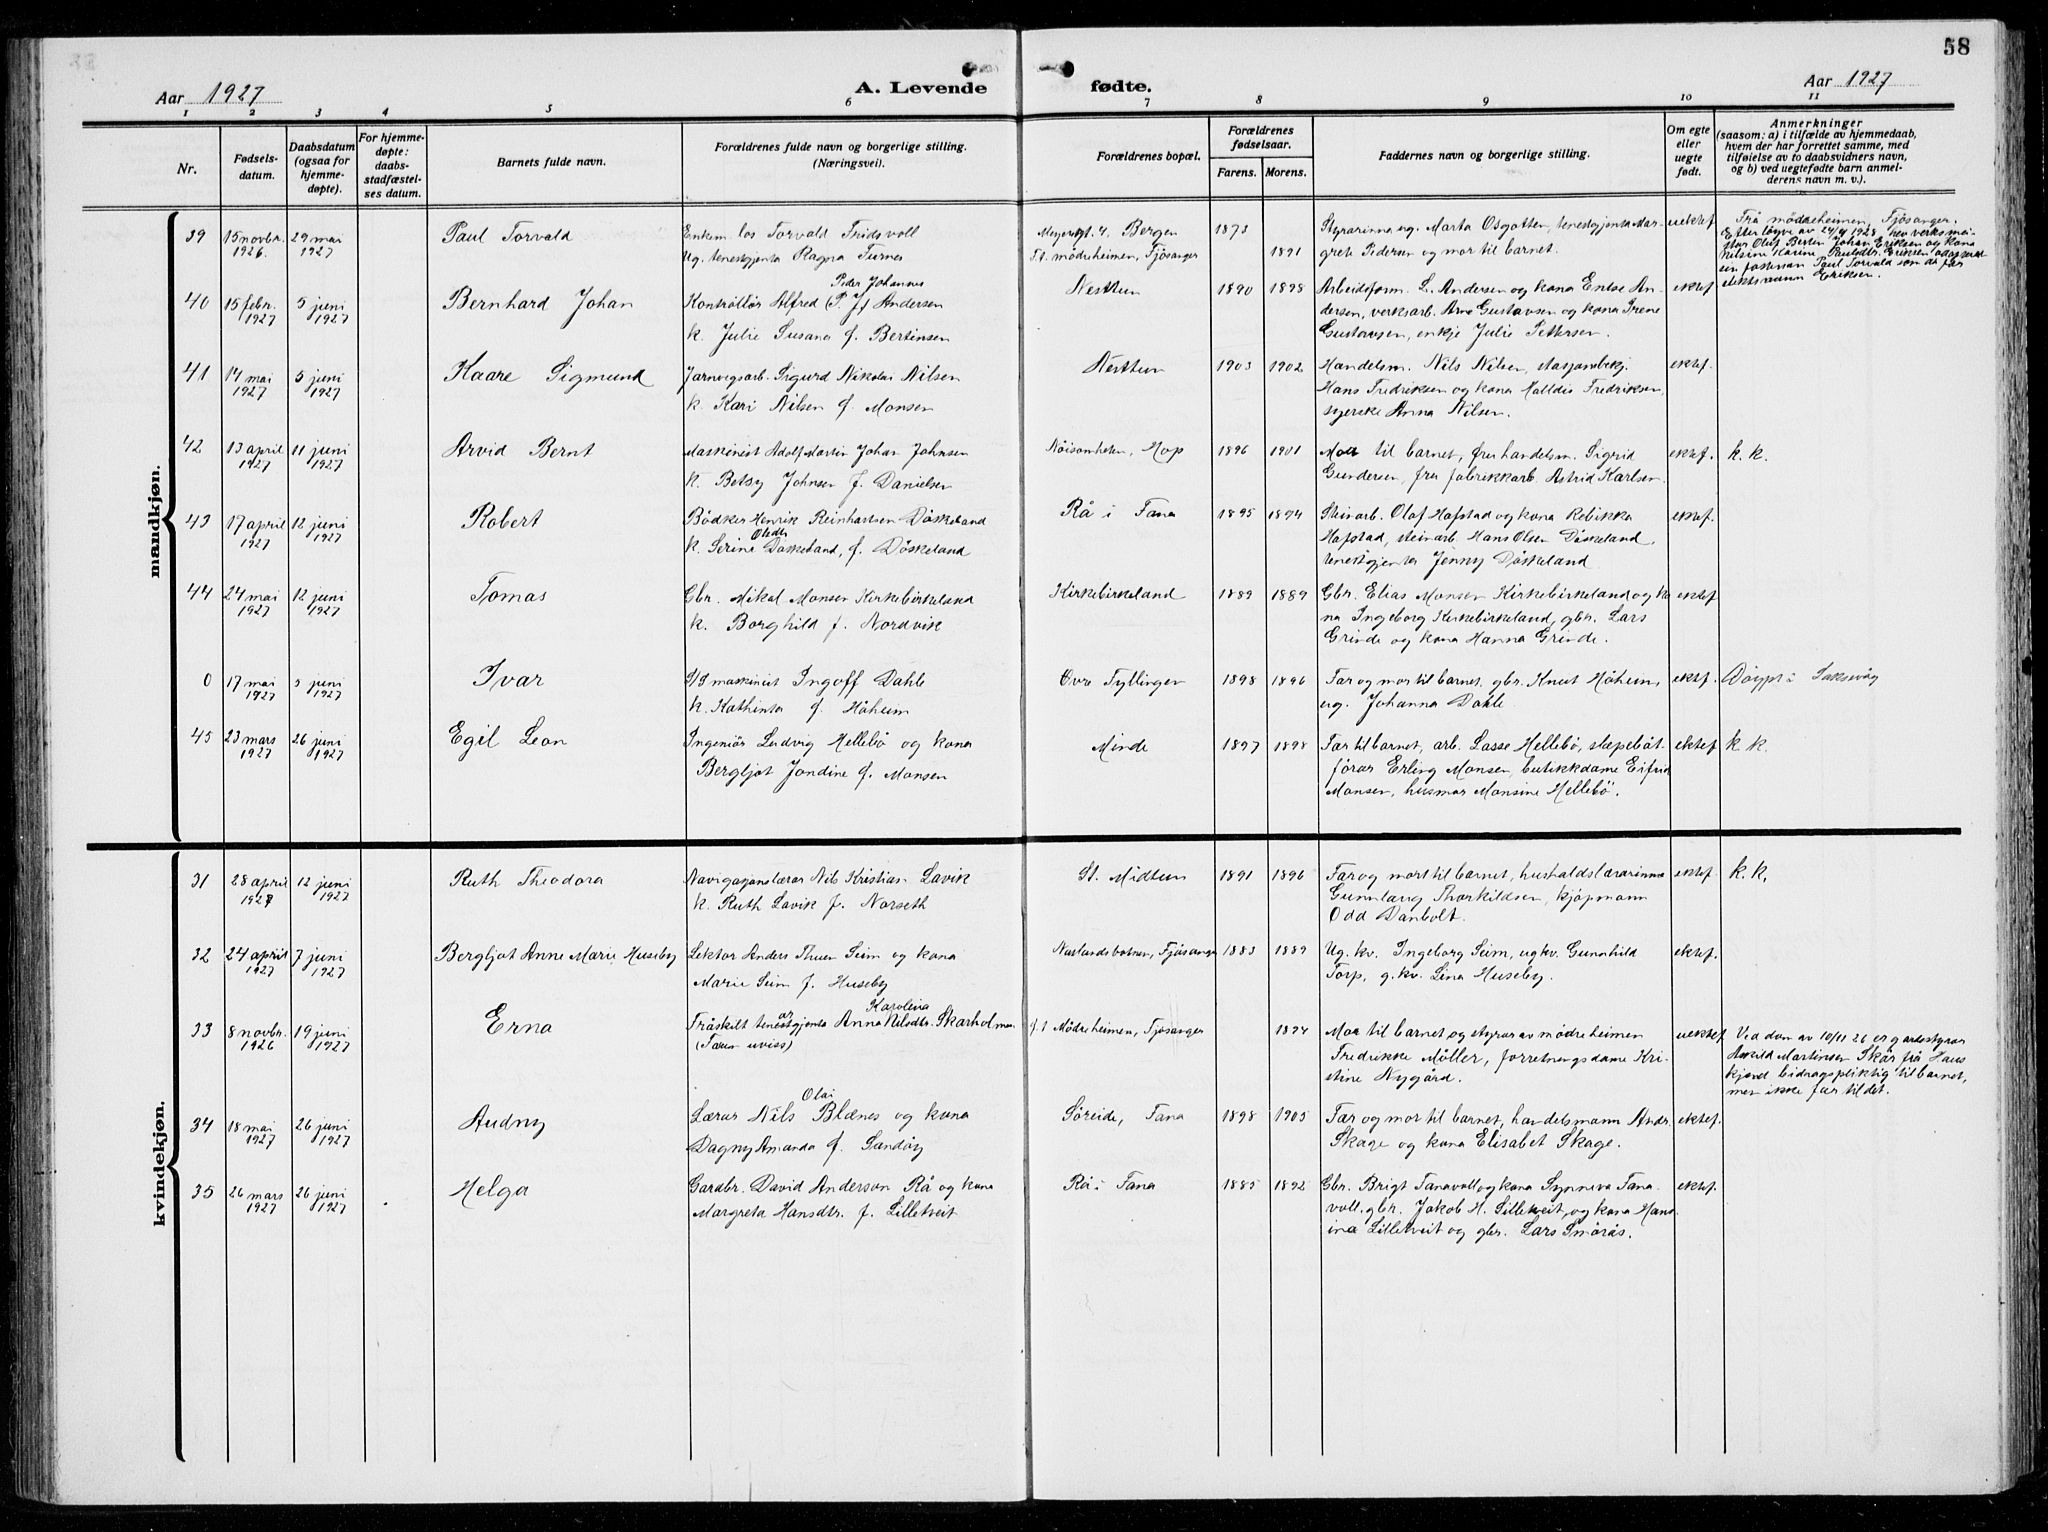 58
Aar 1927
A. Levende fødte.
Aar 1927
1 2 3 4 5 6 7 8 9 10 11
Nr.
Fødsels-
datum.
Daabsdatum
(ogsaa for
hjemme-
døpte).
For hjemme-
døpte:
daabs-
stadfæstel-
ses datum.
Barnets fulde navn.
Forældrenes fulde navn og borgerlige stilling.
(Næringsvei).
Forældrenes bopæl.
Forældrenes
fødselsaar.
Farens. Morens.
Faddernes navn og borgerlige stilling.
Om egte
eller
uegte
født.
Anmerkninger
(saasom: a) i tilfælde av hjemmedaab,
hvem der har forrettet samme, med
tilføielse av to daabsvidners navn,
og b) ved uegtefødte barn anmel-
derens navn m. v.).
mandkjøn.
39 15 novbr. 1926. 29 mai 1927 Paul Torvald
Enkem. los Torvald Fridsvoll
ug. tenestgjenta Ragna Furnes
Meyergt. 4, Bergen
F.t. mødreheimen, Fjøsanger
1873 1891
Styrarinna ug. Marta Osgotten, tenestgjenta Mar-
grete Pedersen og mor til barnet.
uektef
Frå mødreheimen, Fjøsanger.
Efter løyve av 24/4 1928 hev verksmei-
ster Oluf Berten Johan Eriksen og kona
Nilsine Karine Paulsdtr. Eriksen adoptert
ein fosterson Paul Torvald som då får
slektsnamn Eriksen.
40 15 febr. 1927 5 juni 1927 Bernhard Johan
Peder Johannes
Kontrolløs Alfred (P. J) Andersen
k. Julie Susana f. Bertinsen
Nesttun 1890 1898
Arbeidsform. L. Andersen og kona Enise An-
dersen, verksarb. Arne Gustavsen og kona Irene
Gustavsen, enkje Julie Pettersen.
ektef
41 14 mai 1927 5 juni 1927 Kaare Sigmund
Jarnvegsarb. Sigurd Nikolai Nilsen
k. Kari Nilsen f. Monsen
Nesttun 1903 1902
Handelsm. Nils Nilsen, stasjonsbetj.
Hans Fredriksen og kona Halldis Fredriksen,
syerske Anna Nilsen.
ektef.
42 13 april 1927 11 juni 1927 Arvid Bernt
Maskinist Adolf Martin Johan Johnsen
k. Betsy Johnsen f. Danielsen
Nøisomheten, Hop 1896 1901
Mor til barnet, fru handelsm. Sigrid
Gundersen, fru fabrikkarb. Astrid Karlsen.
ektef. k. k.
43 17 april 1927 12 juni 1927 Robert
Bødker Henrik Reinhartsen Døskeland
Olsdtr
k. Serine Døskeland, f. Døskeland
Rå i Fana 1895 1894
Steinarb. Olaf Hafstad og kona Rebikka
Hafstad, steinarb. Hans Olsen Døskeland,
tenestgjenta Jenny Døskeland
ektef.
44 24 mai 1927 12 juni 1927 Tomas
Gbr. Mikal Monsen Kirkebirkeland
k. Borghild f. Nordvik
Kirkebirkeland 1889 1889
Gbr. Elias Monsen Kirkebirkeland og ko
na Ingeborg Kirkebirkeland, gbr. Lars
Grinde og kona Hanna Grinde.
ektef
0 17 mai 1927 5 juni 1927 Ivar
D/S maskinist Ingolf Dahle
k. Kathinka f. Håheim
Øvre Fyllingen 1898 1896
Far og mor til barnet, gbr. Knut Håheim,
ug. Johanna Dahle
ektef. Døypt i Laksevåg
45 23 mars 1927 26 juni 1927 Egil Leon
Ingeniør Ludvig Hellebø og kona
Bergljot Jondine f. Monsen
Minde 1897 1898
Far til barnet, arb. Lasse Hellebø, slepebåt-
førar Erling Monsen, butikkdame Eifrid
Monsen, husmor Monsine Hellebø.
ektef k. k.
kvindekjøn.
31 28 april 1927 12 juni 1927 Ruth Theodora
Navigasjonslærar Nils Kristian Lavik
k. Ruth Lavik f. Norseth
St. Midttun 1891 1896
Far og mor til barnet, hushaldslærarinna
Gunnlaug Thorkildsen, kjøpmann
Odd Danbolt.
ektef. k. k.
32 24 april 1927 7 juni 1927 Bergljot Anne Marie Huseby
Lektor Anders Thue Seim og kona
Marie Seim f. Huseby
Nordåsbotnen, Fjøsanger 1883 1889
Ug. kv. Ingeborg Seim, ug kv. Gunnhild
Torp, g. kv. Lina Huseby.
ektef.
33 8 novbr. 1926 19 juni 1927 Erna
Karolina
Fråskilt tenestgjenta Anna Nilsdtr. Skarholmen
(Faren uviss)
f. t Mødreheimen, Fjøsanger 1894
Mor til barnet og styrar av mødreheimen
Fredrikke Møller, forretningsdame Kri-
stine Nygård.
uektef
Ved dom av 10/11 26 er gardstyrar
Askild Martinsen Skår frå Haus
kjend bidragspliktig til barnet,
men ikke far til det.
34 18 mai 1927 26 juni 1927 Audny
Olai
Lærar Nils Blænes og kona
Dagny Amanda f. Sandøy
Søreide, Fana 1898 1905
Far og mor til barnet, handelsmann Andr.
Skage og kona Elisabet Skage.
ektef.
35 26 mars 1927 26 juni 1927 Helga
Gardbr. David Anderson Rå og kona
Margreta Hansdtr. f. Lilletveit
Rå i Fana 1885 1892
Gbr. Brigt Fanavoll og kona Synneva Fana-
voll, gbr. Jakob H. Lilletveit og kona Han-
ina Lilletveit og gbr. Lars Smørås.
ektef.